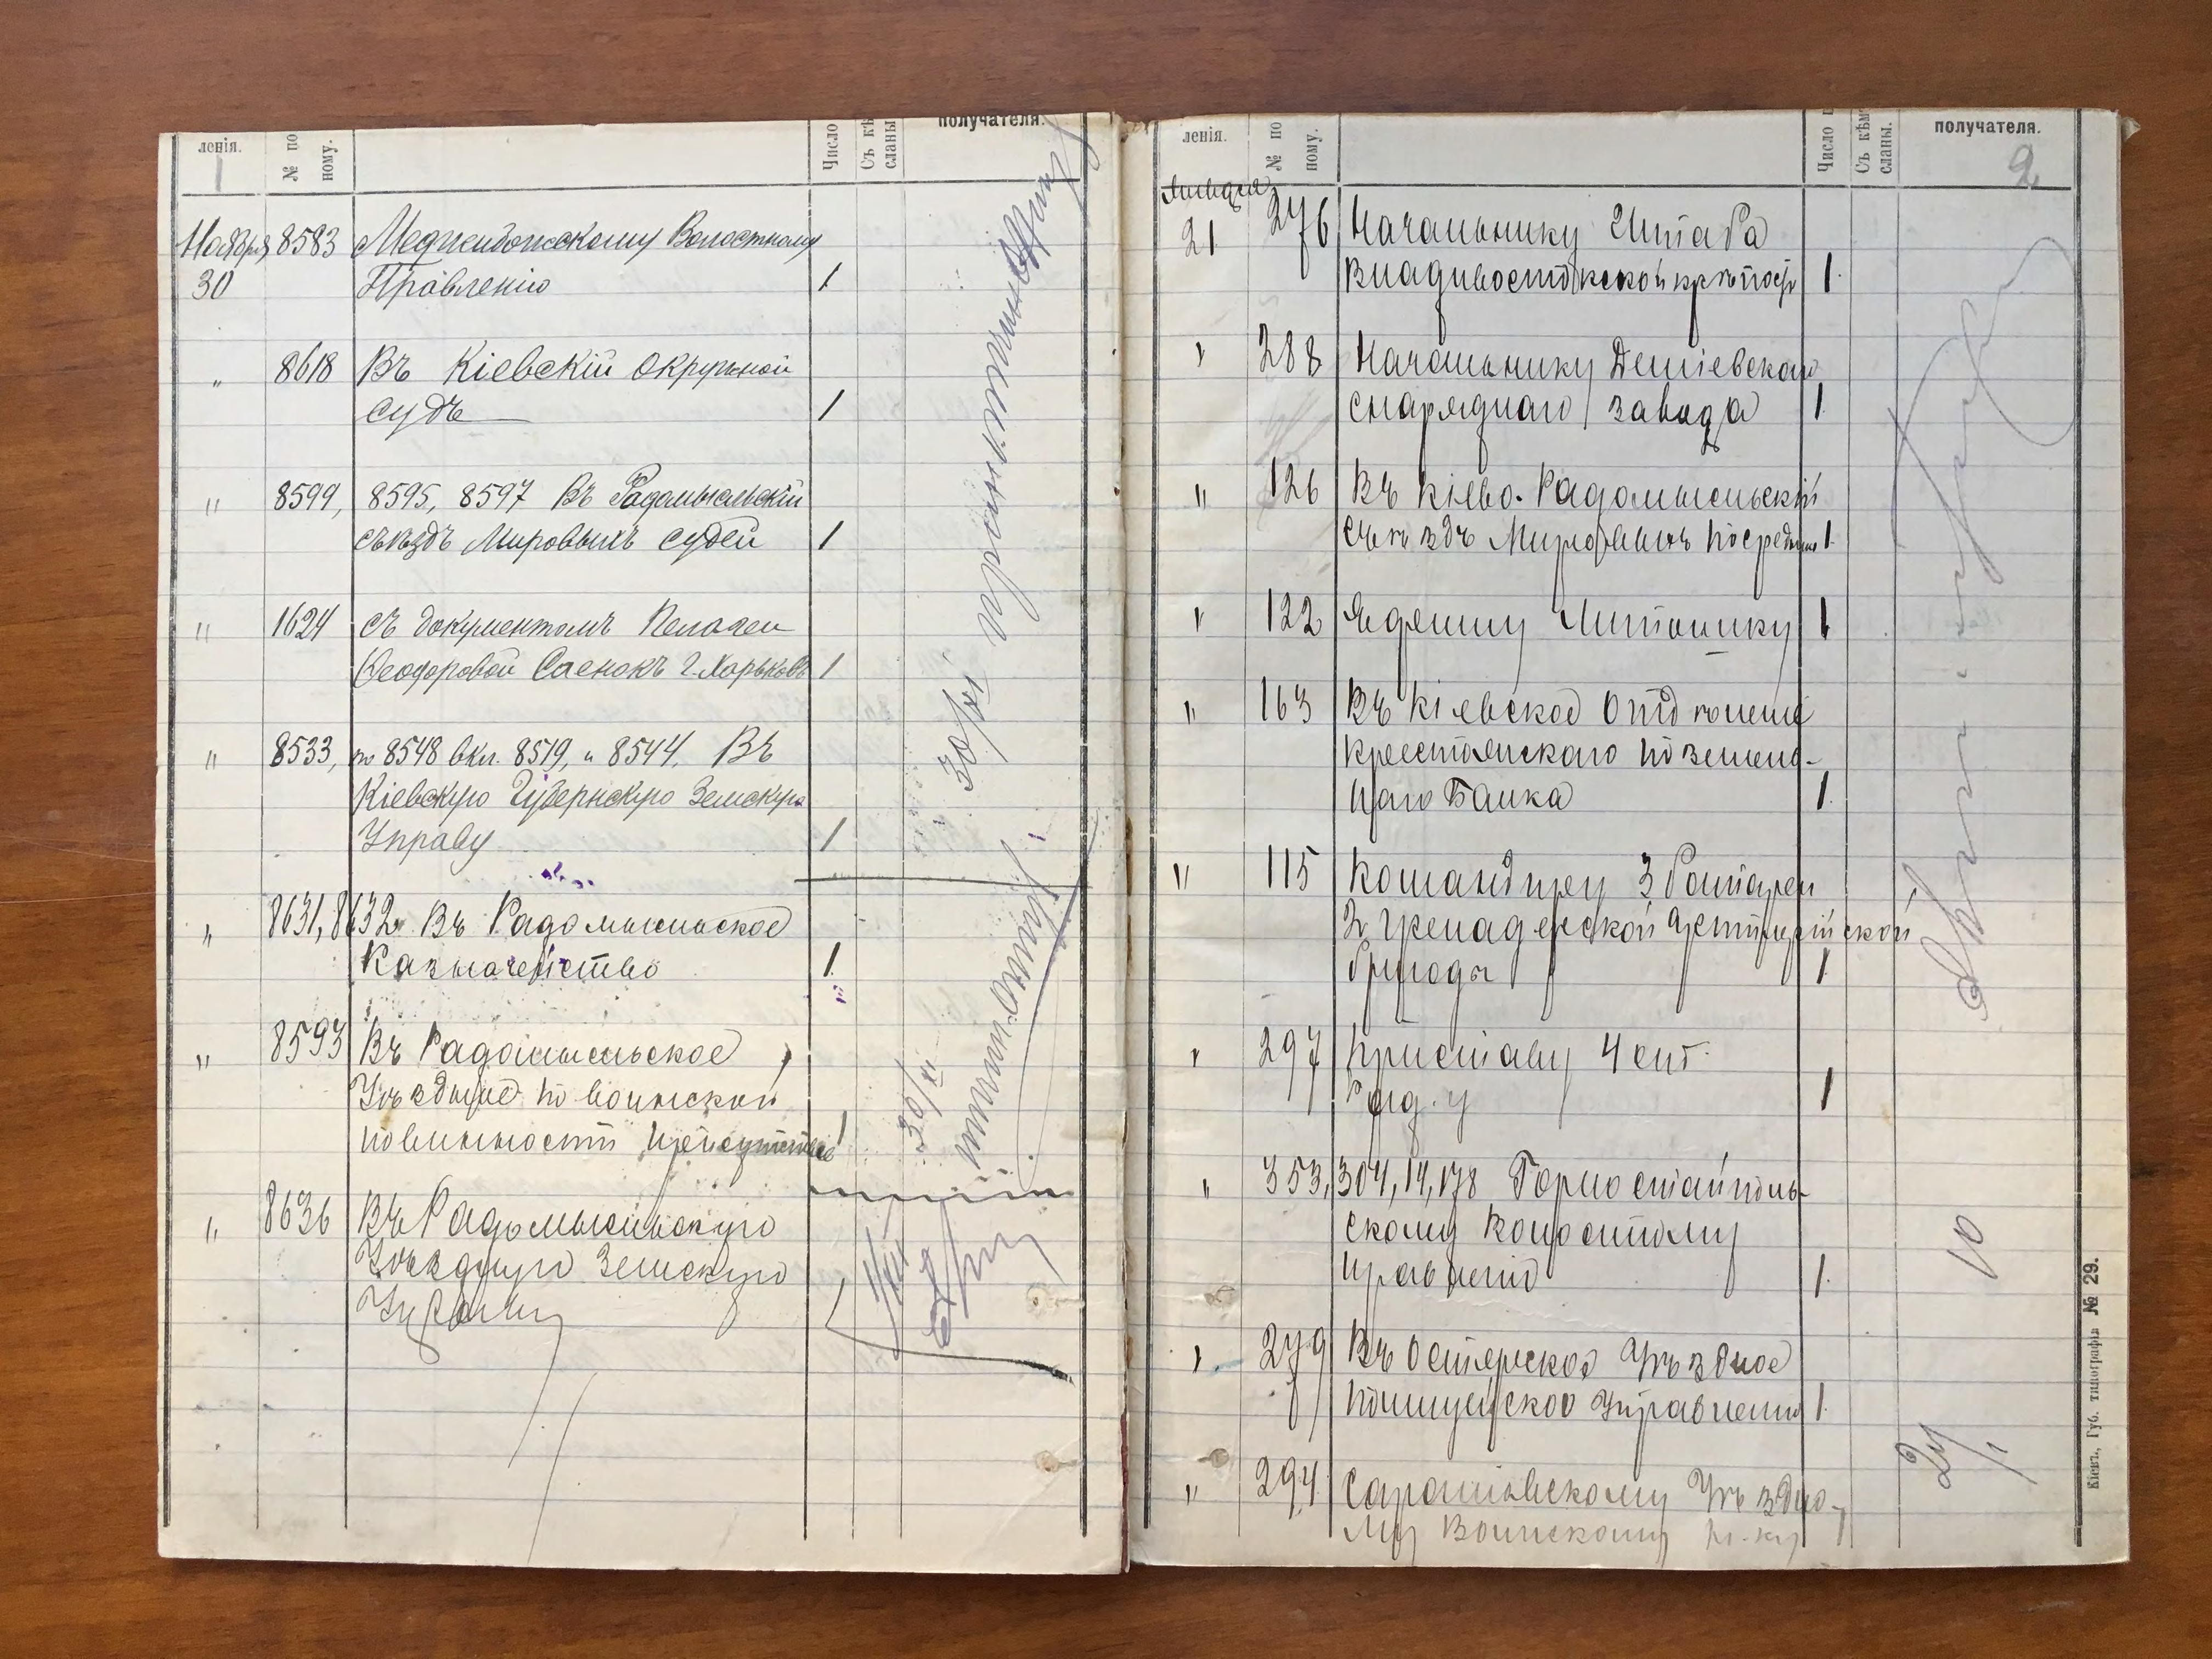 ленія.
№ по
ному.
Число
Съ кѣ
сланы
получателя.
1
Ноября 8583 Меджибожскому Волостному
30 Правленію 1
" 8618 Въ Кіевскій Окружной
судъ 1
" 8599, 8595, 8597 Въ Радомысльскій
съѣздъ Мировыхъ судей 1
" 1624 съ документомъ Пелагеи
Феодоровой Саенокъ г. Харьковъ 1
" 8533, по 8548 вкл. 8519, и 8544. Въ
Кіевскую Губернскую Земскую
Управу 1
" 8631, 8632 Въ Радомысльское
Казначейство 1
" 8593 Въ Радомысльское
Уѣздное по воинской
повинности присутствіе 1
" 8636 Въ Радомысльскую
Уѣздную Земскую
Управу
30/XI
30/XI
ленія.
№ по
ному.
Число
Съ кѣм
сланы.
получателя.
2
Января
21 276 Начальнику Штаба
Владивостокской крѣпости 1
" 288 Начальнику
снаряднаго завода 1
" 126 Въ Кіево-Радомысльскій
съѣздъ Мировыхъ посредник 1
" 122 1
" 163 Въ Кіевское Отдѣленіе
Крестьянскаго поземель-
наго Банка 1
" 115 Командиру 3 батареи
2 гренадерской Артиллерійской
бригады 1
" 297 Приставу 4 ст.
Рад. у 1
" 353, 304, 14, 178 Горностайполь-
скому Волостному
правленію 1
" 279 Въ Остерское Уѣздное
Полицейское Управленіе 1
" 294 Уѣздно-
му Воинскому Н-ку
10
21/1
Кіевъ, Губ. типографія № 29.